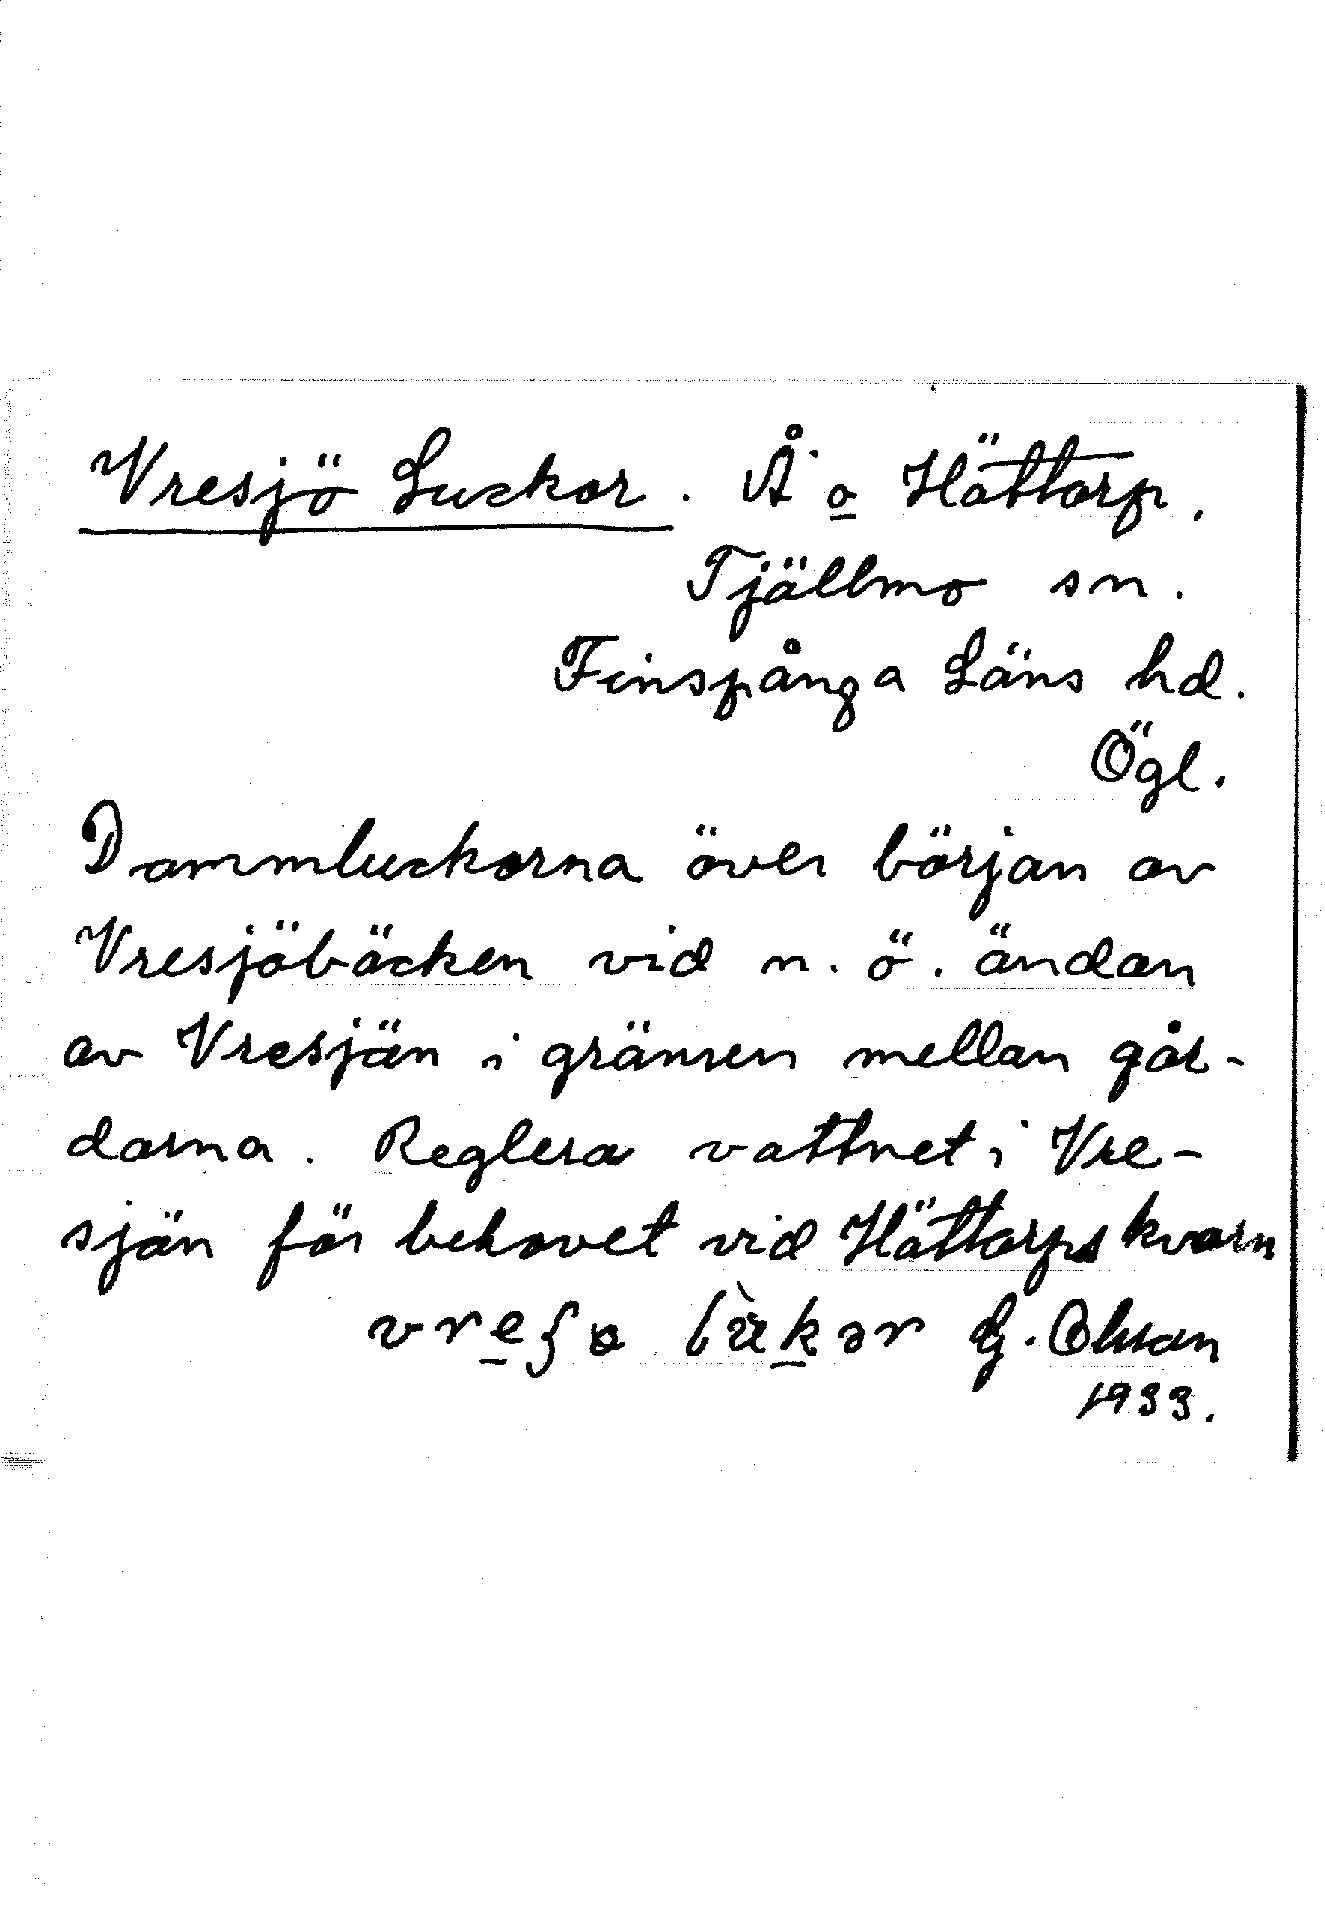 Vresjö Luckor. Å o Hättorp.
Tjällmo sn.
Finspånga Läns hd.
Ögl.
Dammluckorna över början av
Vresjöbäcken vid n. ö. ändan
av Vresjön i gränsen mellan går-
darna. Reglera vattnet i Vre-
sjön för behovet vid Hättorps kvarn
G. Olsson
1933.